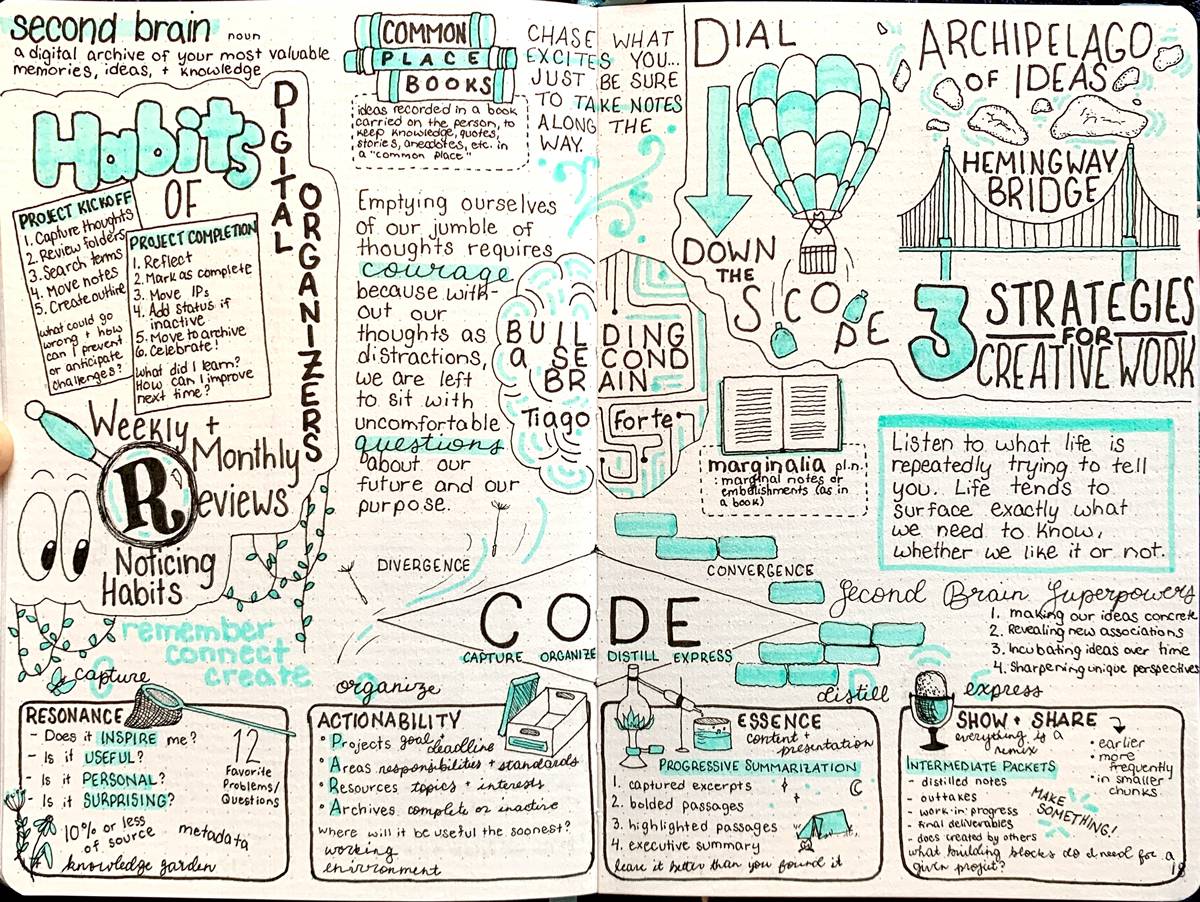 second brain noun
a digital archive of your most valuable
memories, ideas, + knowledge
Habits
OF
DIGITAL
ORGANIZERS
PROJECT KICKOFF
1. Capture thoughts
2. Review folders
3. Search terms
4. Move notes
5. Create outline
what could go
wrong + how
can I prevent
or anticipate
challenges?
PROJECT COMPLETION
1. Reflect
2. Mark as complete
3. Move IPs
4. Add status if
inactive
5. Move to archive
6. Celebrate!
What did I learn?
How can I improve
next time?
Weekly +
Monthly
Reviews
Noticing
Habits
COMMON
PLACE
BOOKS
ideas recorded in a book
carried on the person, to
keep knowledge, quotes,
stories, anecdotes, etc. in
a "common place"
CHASE WHAT
EXCITES YOU...
JUST BE SURE
TO TAKE NOTES
ALONG THE
WAY.
Emptying ourselves
of our jumble of
thoughts requires
courage
because with-
out our
thoughts as
distractions,
we are left
to sit with
uncomfortable
questions
about our
future and our
purpose.
BUILDING
a SECOND
BRAIN
Tiago Forte
DIAL
DOWN
THE
SCOPE
ARCHIPELAGO
OF IDEAS
HEMINGWAY
BRIDGE
3 STRATEGIES
FOR
CREATIVE WORK
marginalia pl.n.
: marginal notes or
embellishments (as in
a book)
Listen to what life is
repeatedly trying to tell
you. Life tends to
surface exactly what
we need to know,
whether we like it or not.
DIVERGENCE
CONVERGENCE
CODE
CAPTURE ORGANIZE DISTILL EXPRESS
Second Brain Superpowers
1. making our ideas concrete
2. Revealing new associations
3. Incubating ideas over time
4. Sharpening unique perspectives
remember
connect
create
capture
RESONANCE
- Does it INSPIRE me?
- Is it USEFUL?
- Is it PERSONAL?
- Is it SURPRISING?
12
Favorite
Problems/
Questions
10% or less
of source
metadata
knowledge garden
organize
ACTIONABILITY
• Projects goal + deadline
• Areas responsibilities + standards
• Resources topics + interests
• Archives complete or inactive
where will it be useful the soonest?
working
environment
distill
ESSENCE
content +
presentation
PROGRESSIVE SUMMARIZATION
1. captured excerpts
2. bolded passages
3. highlighted passages
4. executive summary
leave it better than you found it
express
SHOW + SHARE
everything is a
remix
• earlier
• more
frequently
• in smaller
chunks
INTERMEDIATE PACKETS
- distilled notes
- outtakes
- work-in-progress
- final deliverables
- docs created by others
MAKE
SOMETHING!
what building blocks do I need for a
given project?
18